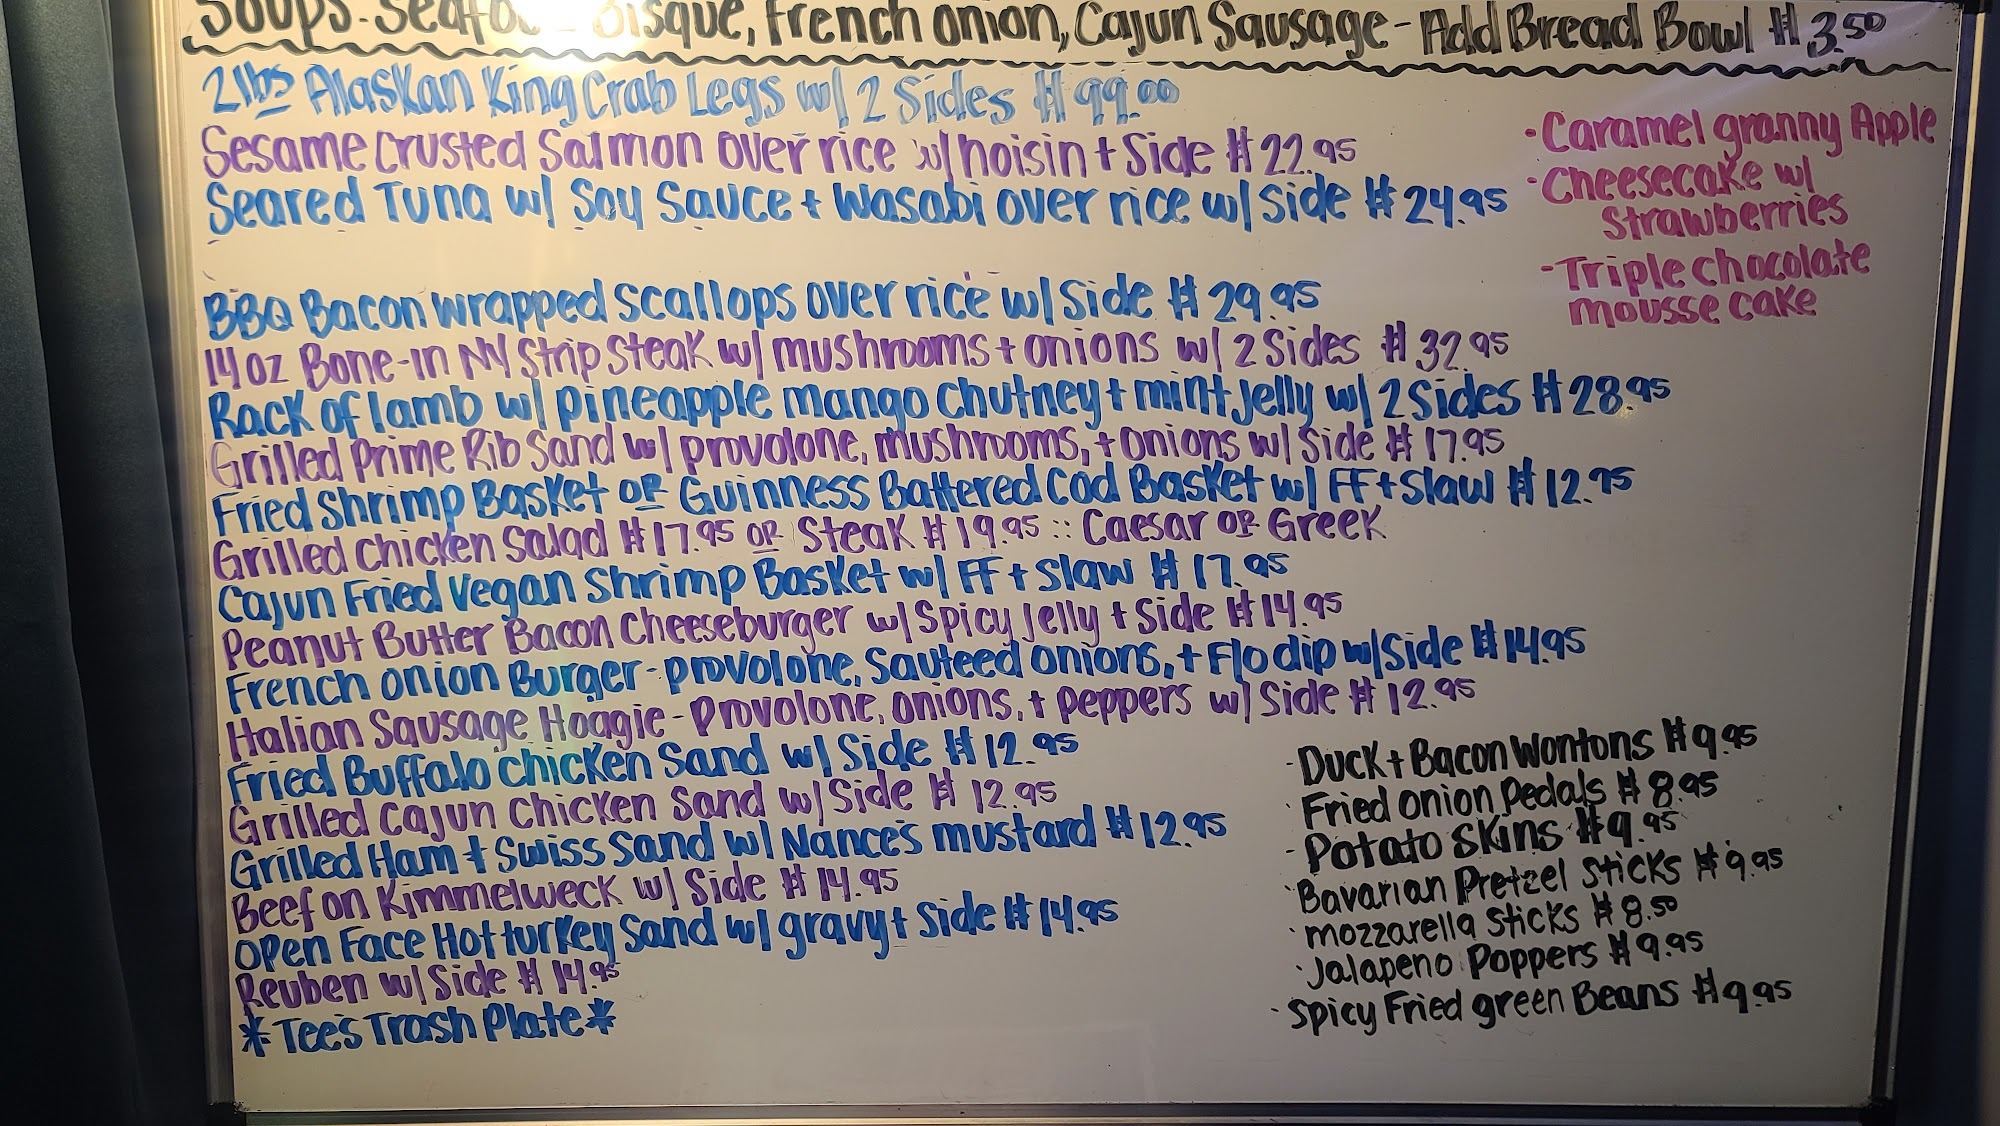 Soups- Seafood Bisque, French Onion, Cajun Sausage - Add Bread Bowl $3.50
2lbs Alaskan King Crab Legs w/ 2 Sides $99.00
Sesame Crusted Salmon over rice w/ hoisin + Side $22.95
Seared Tuna w/ Soy Sauce + Wasabi over rice w/ Side $24.95
BBQ Bacon wrapped scallops over rice w/ Side $29.95
14oz Bone-in NY Strip Steak w/ mushrooms + onions w/ 2 Sides $32.95
Rack of lamb w/ pineapple mango chutney + mint jelly w/ 2 Sides $28.95
Grilled Prime Rib Sand w/ provolone, mushrooms, + onions w/ Side $17.95
Fried Shrimp Basket OR Guinness Battered Cod Basket w/ FF + Slaw $12.95
Grilled Chicken Salad $17.95 OR Steak $19.95 :: Caesar OR Greek
Cajun Fried Vegan Shrimp Basket w/ FF + Slaw $17.95
Peanut Butter Bacon Cheeseburger w/ Spicy Jelly + Side $14.95
French Onion Burger - provolone, Sauteed onions, + Flo dip w/ Side $14.95
Italian Sausage Hoagie - Provolone, onions, + peppers w/ Side $12.95
Fried Buffalo Chicken Sand w/ Side $12.95
Grilled Cajun Chicken Sand w/ Side $12.95
Grilled Ham + Swiss Sand w/ Nance's mustard $12.95
Beef on Kimmelweck w/ Side $14.95
Open Face Hot turkey Sand w/ gravy + Side $14.95
Reuben w/ Side $14.95
*Tee's Trash Plate*
- Caramel granny Apple
- Cheesecake w/
Strawberries
- Triple chocolate
mousse cake
- Duck + Bacon Wontons $9.95
- Fried Onion Pedals $8.95
- Potato Skins $9.95
- Bavarian Pretzel Sticks $9.95
- mozzarella Sticks $8.50
- Jalapeno Poppers $9.95
- Spicy Fried green Beans $9.95